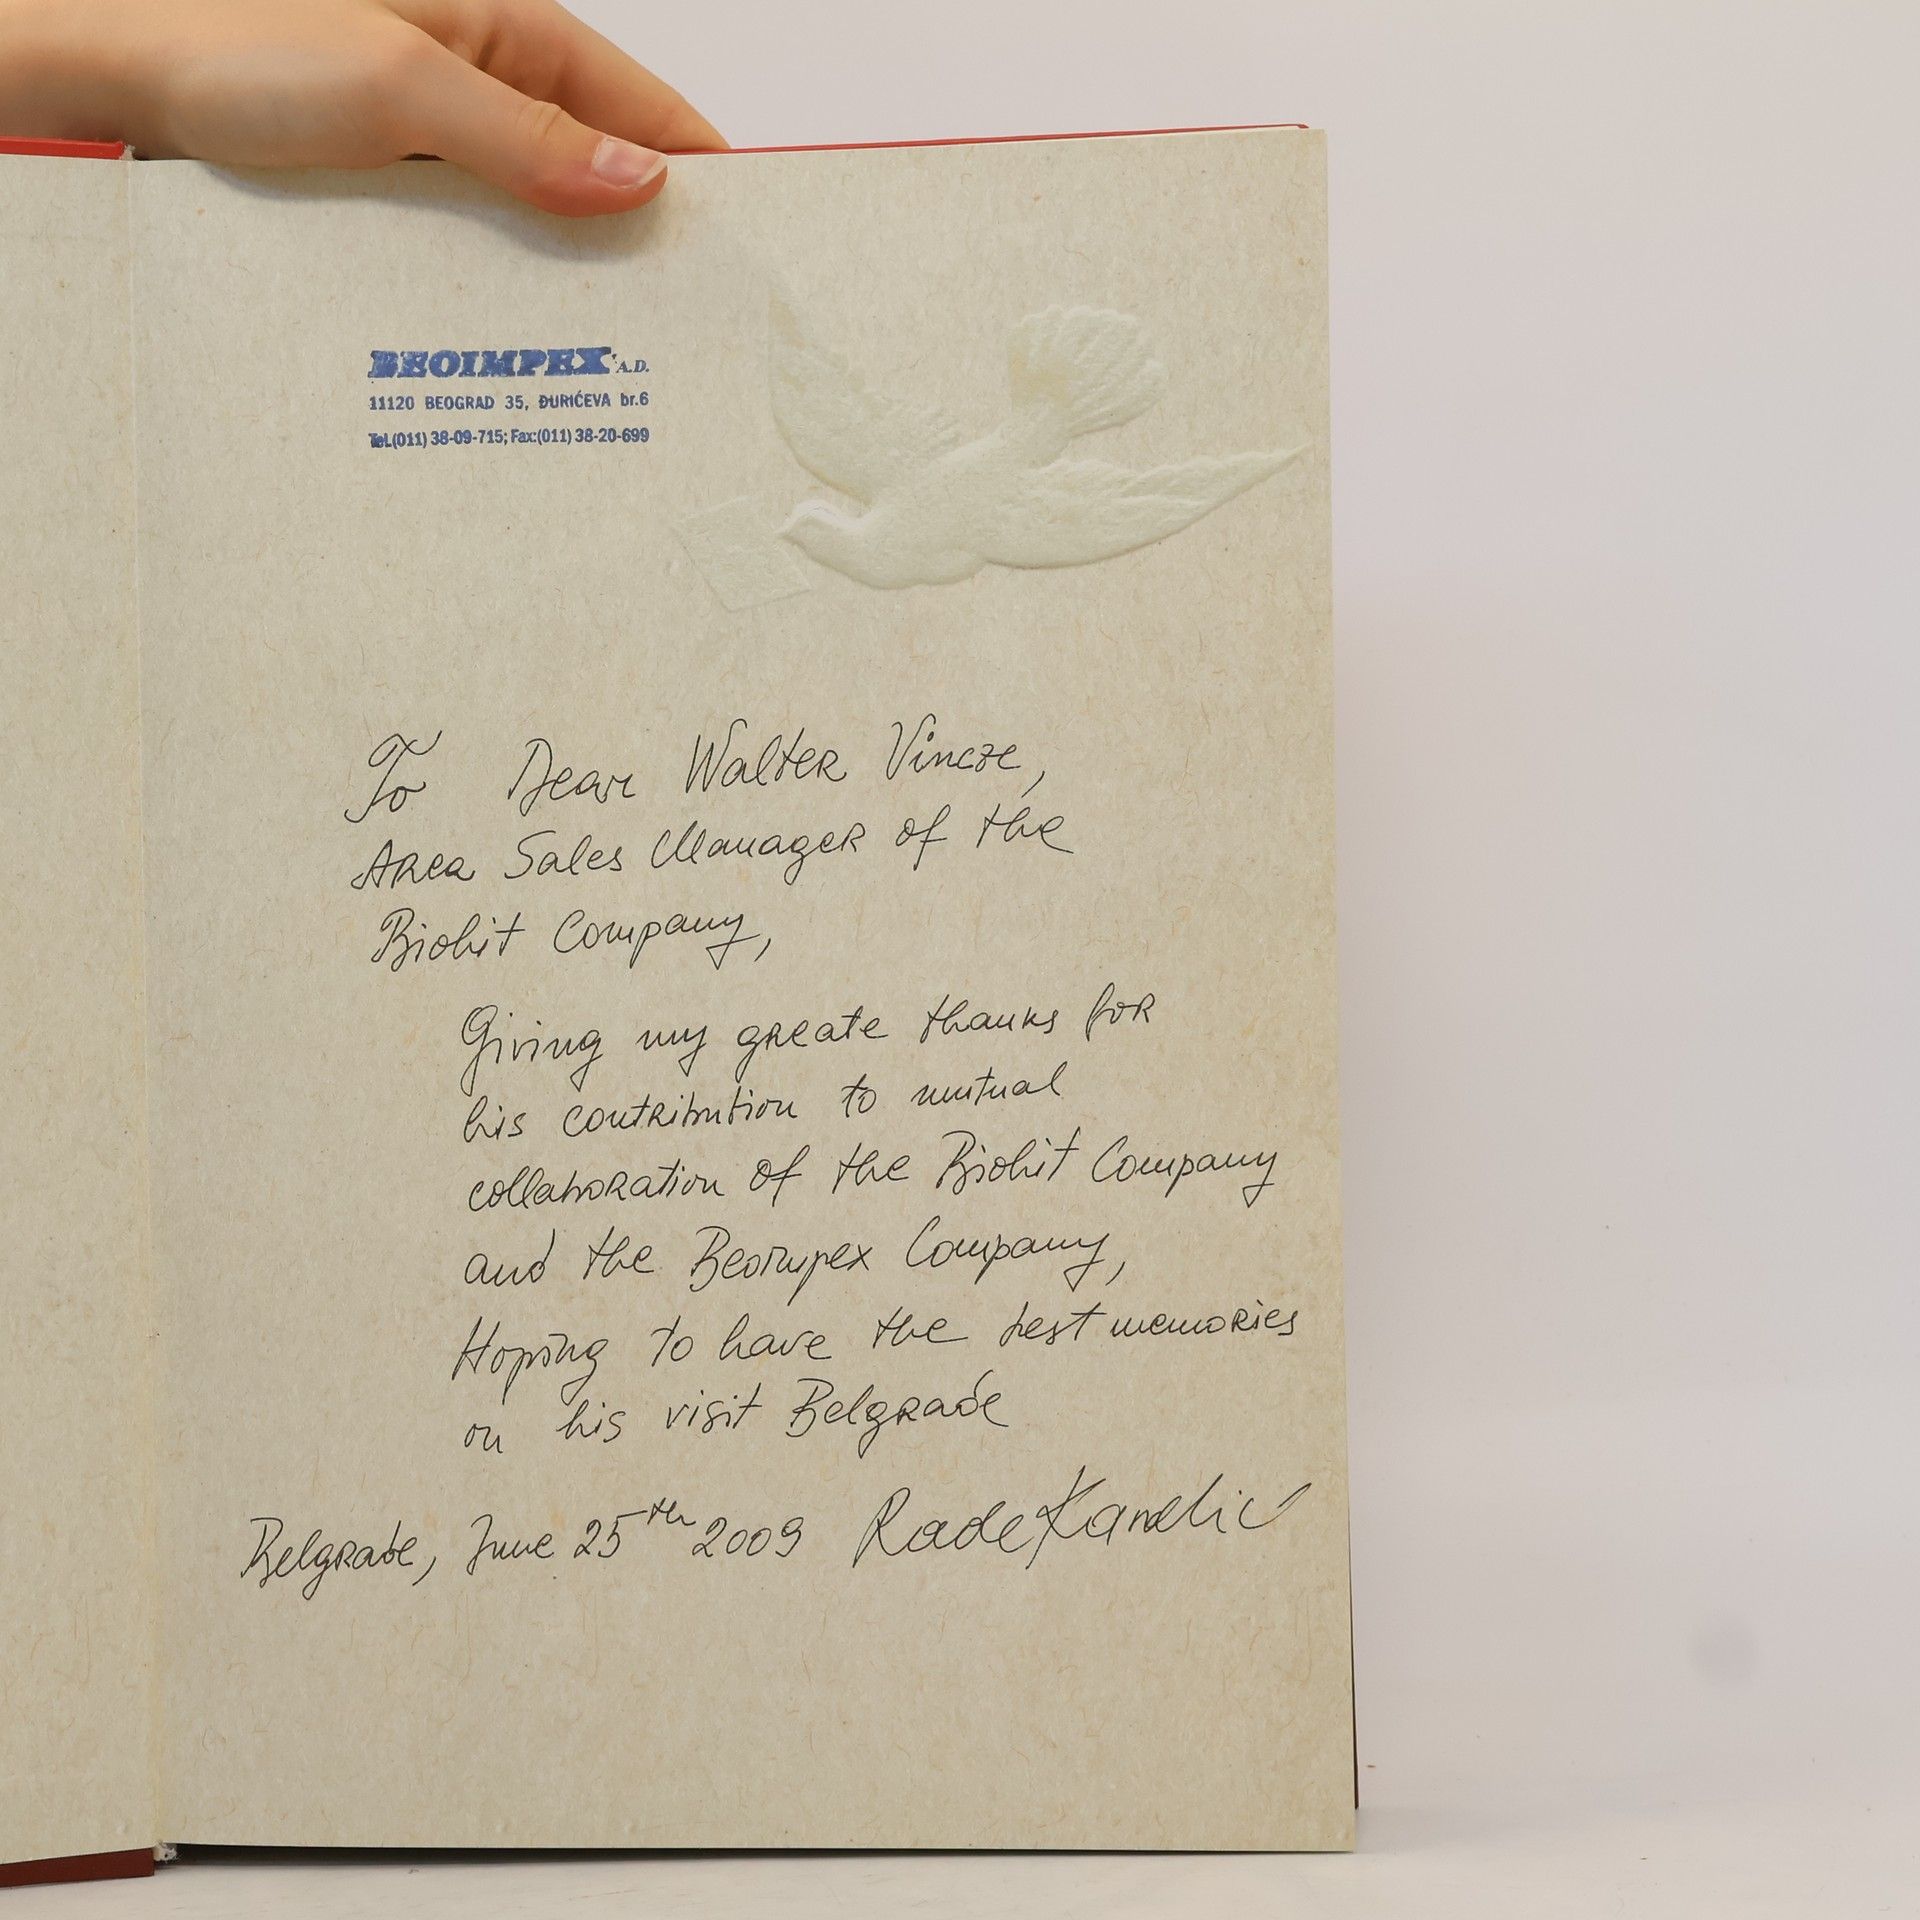 BEOIMPEX A.D.
11120 BEOGRAD 35, ĐURIĆEVA br.6
Tel.(011) 38-09-715; Fax:(011) 38-20-699
To Dear Walter Vincze,
Area Sales Manager of the
Biohit Company,
Giving my greate thanks for
his contribution to mutual
collaboration of the Biohit Company
and the Beoimpex Company,
Hoping to have the best memories
on his visit Belgrade
Belgrade, June 25th 2009 Rade